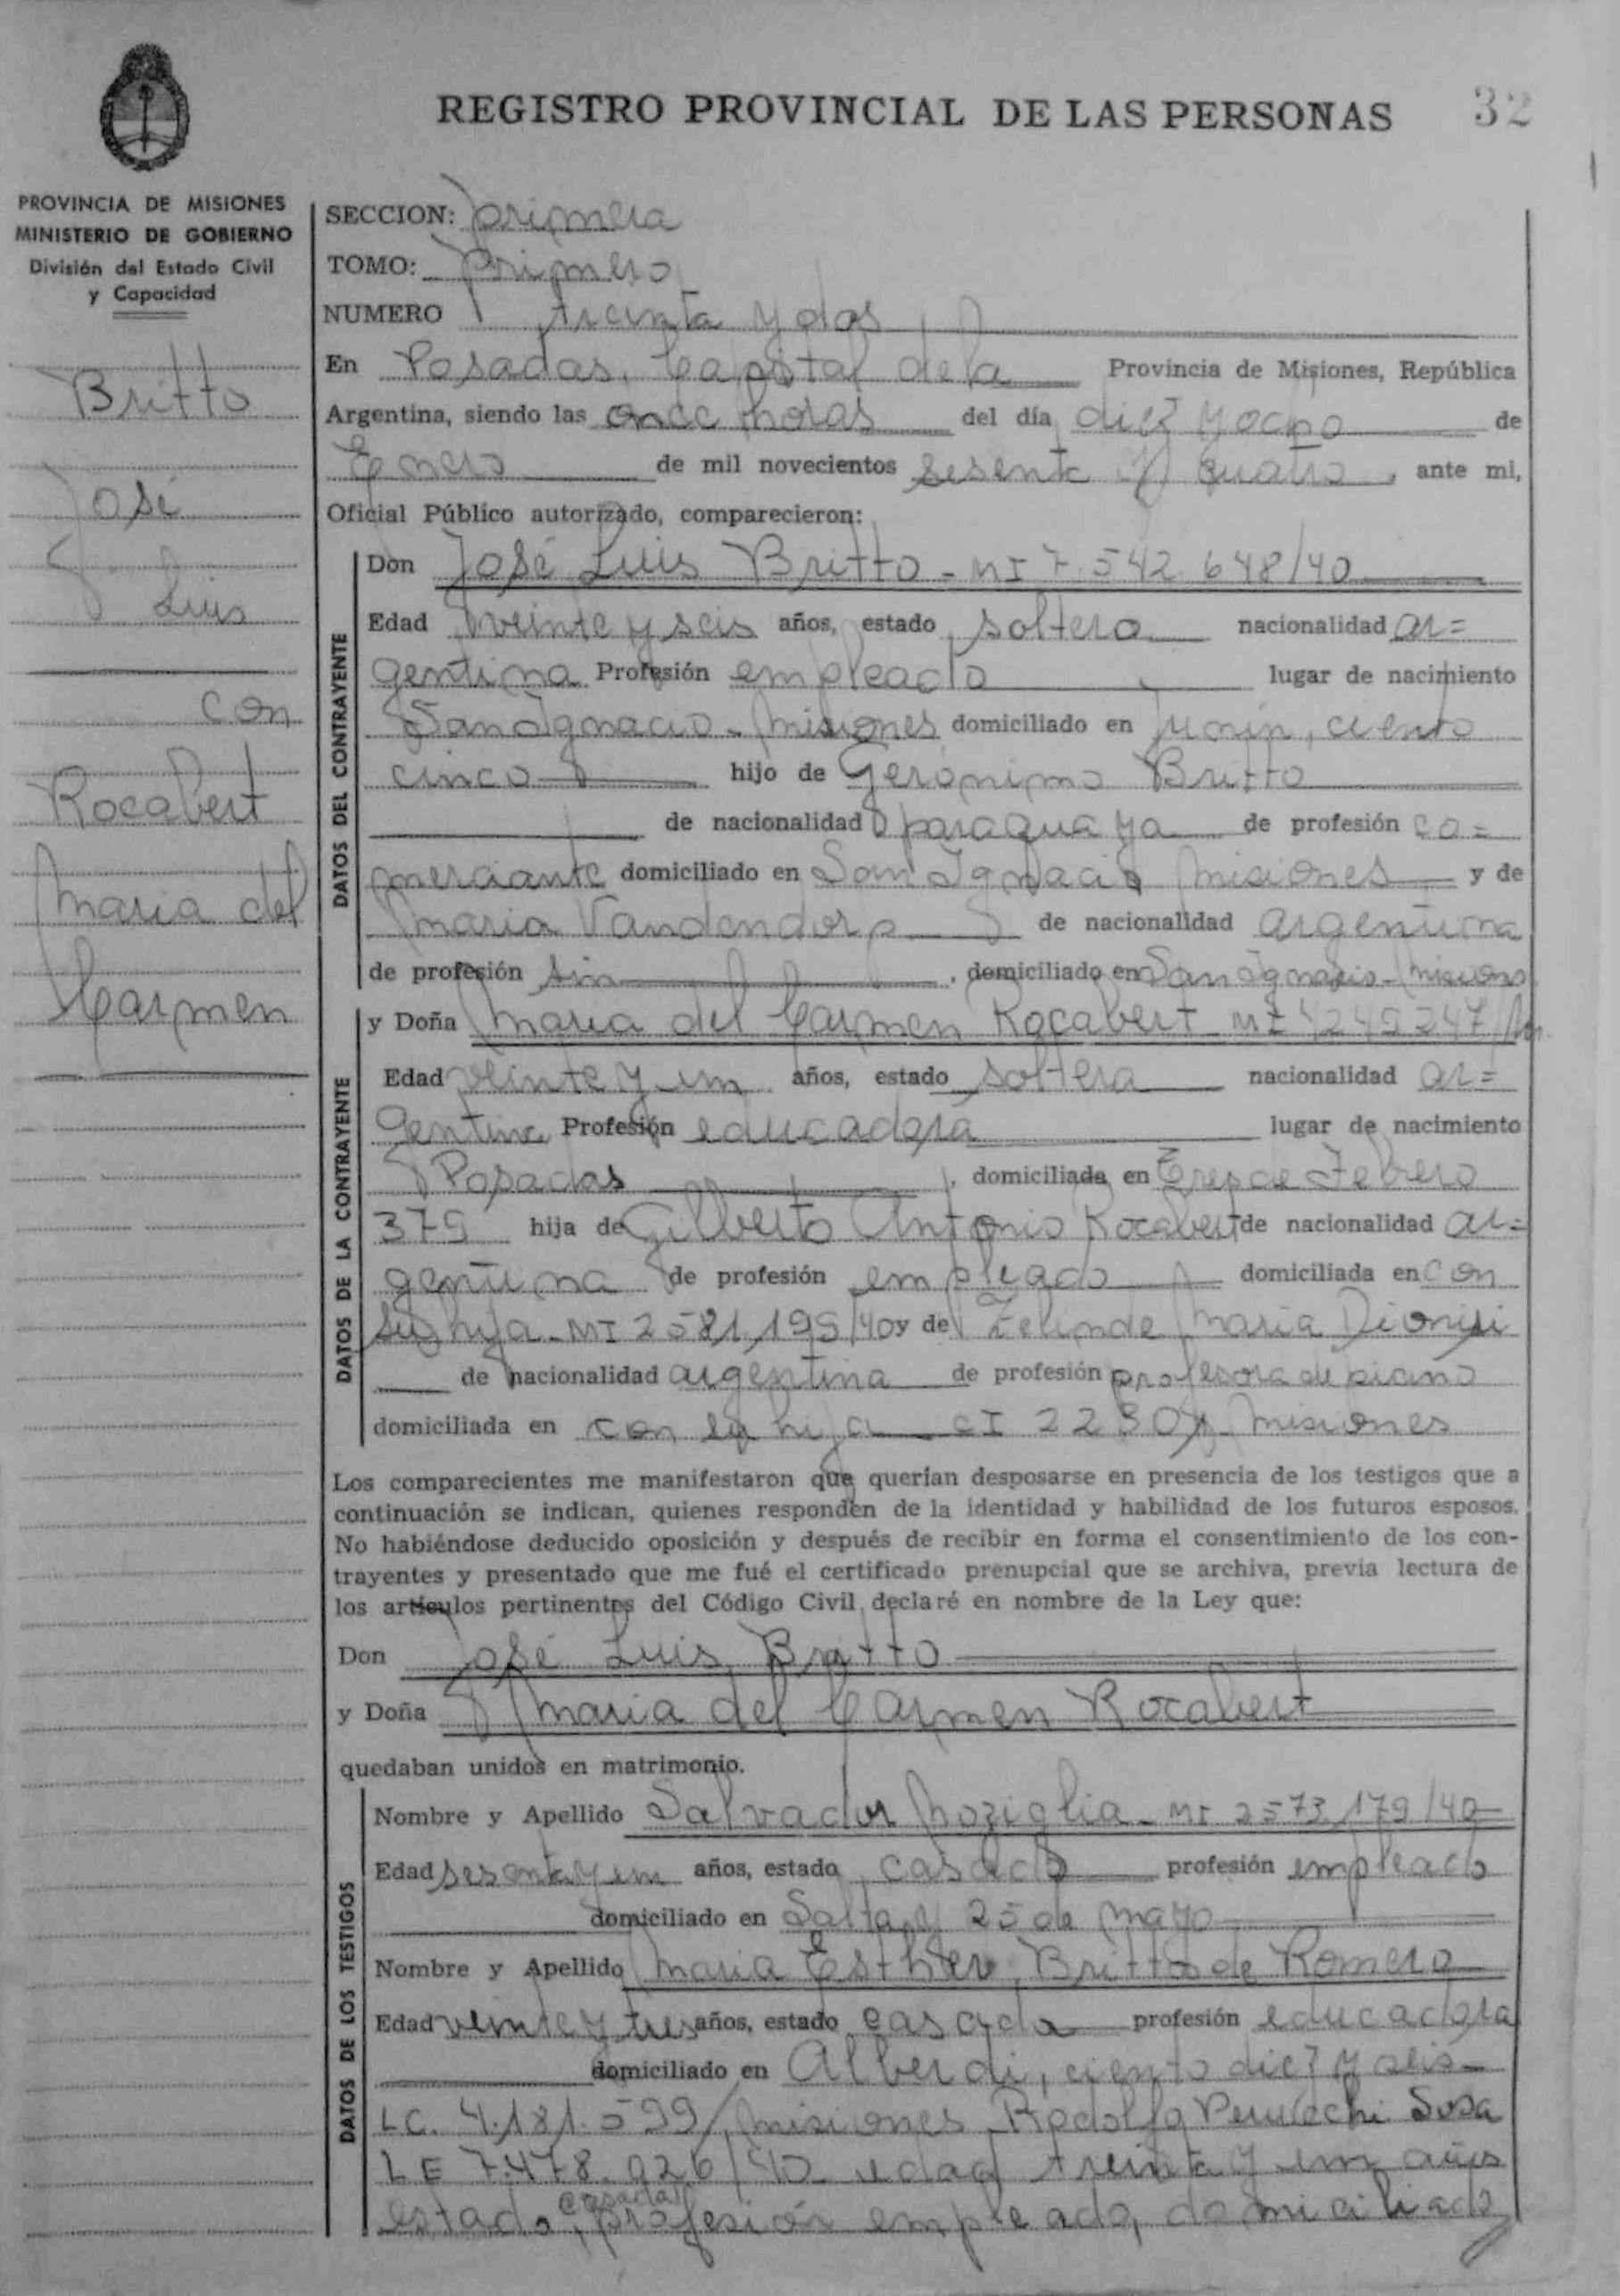 REGISTRO PROVINCIAL DE LAS PERSONAS 32
PROVINCIA DE MISIONES
MINISTERIO DE GOBIERNO
División del Estado Civil
y Capacidad
Britto
José
Luis
con
Rocabert
Maria del
Carmen
SECCION: primera
TOMO: Primero
NUMERO treinta y dos
En Posadas, Capital de la Provincia de Misiones, República
Argentina, siendo las once horas del día diez y ocho de
Enero de mil novecientos sesenta y quatro, ante mi,
Oficial Público autorizado, comparecieron:
DATOS DEL CONTRAYENTE
Don José Luis Britto - MI 7.542.648/40
Edad veinte y seis años, estado soltero nacionalidad ar=
gentina Profesión empleado lugar de nacimiento
San Ignacio - Misiones domiciliado en Junín, ciento
cinco hijo de Gerónimo Britto
de nacionalidad paraguaya de profesión co=
merciante domiciliado en San Ignacio Misiones y de
Maria Vandendorp de nacionalidad argentina
de profesión sin, domiciliado en San Ignacio - Misiones
DATOS DE LA CONTRAYENTE
y Doña Maria del Carmen Rocabert MI 4249247
Edad veinte y un años, estado soltera nacionalidad ar=
gentina Profesión educadora lugar de nacimiento
Posadas, domiciliada en Tres de Febrero
379 hija de Gilberto Antonio Rocabert de nacionalidad ar=
gentina de profesión empleado domiciliada en con
su hija - MI 2581,199/40 y de Zelinde Maria Dionisi
de nacionalidad argentina de profesión profesora de piano
domiciliada en con su hija - CI Misiones
Los comparecientes me manifestaron que querían desposarse en presencia de los testigos que a
continuación se indican, quienes responden de la identidad y habilidad de los futuros esposos.
No habiéndose deducido oposición y después de recibir en forma el consentimiento de los con-
trayentes y presentado que me fué el certificado prenupcial que se archiva, previa lectura de
los artículos pertinentes del Código Civil, declaré en nombre de la Ley que:
Don José Luis Britto
y Doña Maria del Carmen Rocabert
quedaban unidos en matrimonio.
DATOS DE LOS TESTIGOS
Nombre y Apellido Salvador Moziglia - MI 2573,179/40
Edad sesenta y un años, estado casado profesión empleado
domiciliado en Salta y 25 de Mayo
Nombre y Apellido Maria Esther Britto de Romero
Edad veinte y tres años, estado casada profesión educadora
domiciliado en Alberdi, ciento diez y seis -
LC. 4.181.599/Misiones Rodolfo Sosa
LE 7.478.026/40 edad treinta y un años
estado casado, profesión empleado, domiciliado